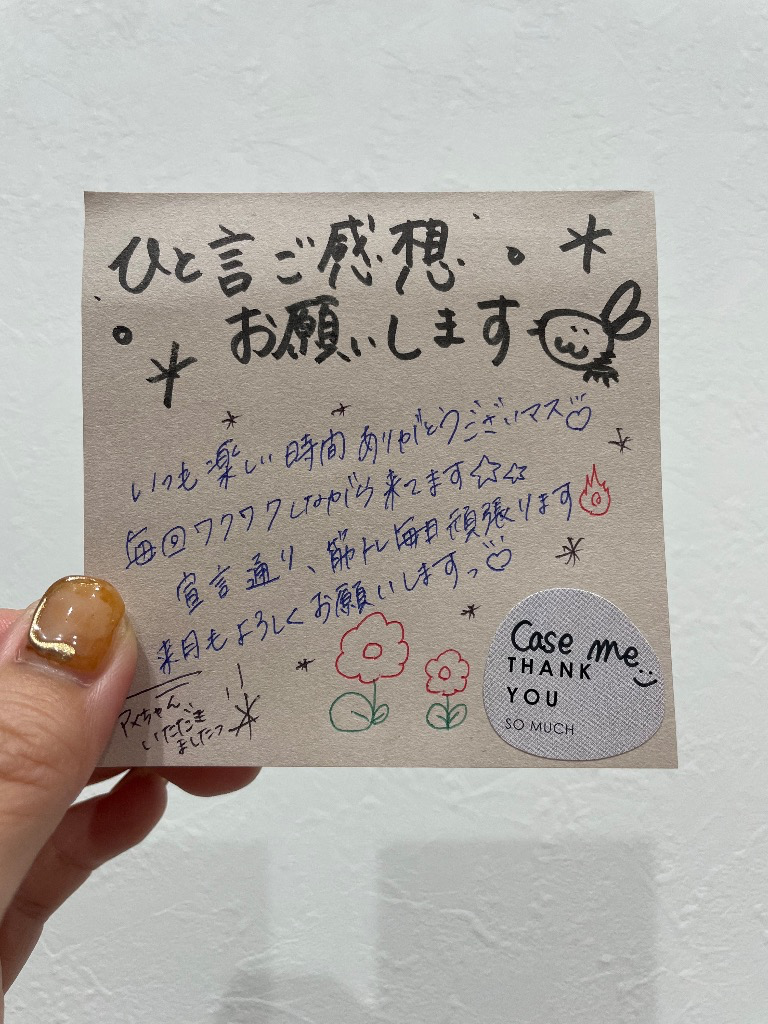 ひと言ご感想
お願いします
いつも楽しい時間ありがとうございマス♡
毎回ワクワクしながら来てます☆☆
宣言通り、筋トレ毎日頑張ります
来月もよろしくお願いしますっ♡
アメちゃん
いただき
ましたっ
Case me
THANK
YOU
SO MUCH